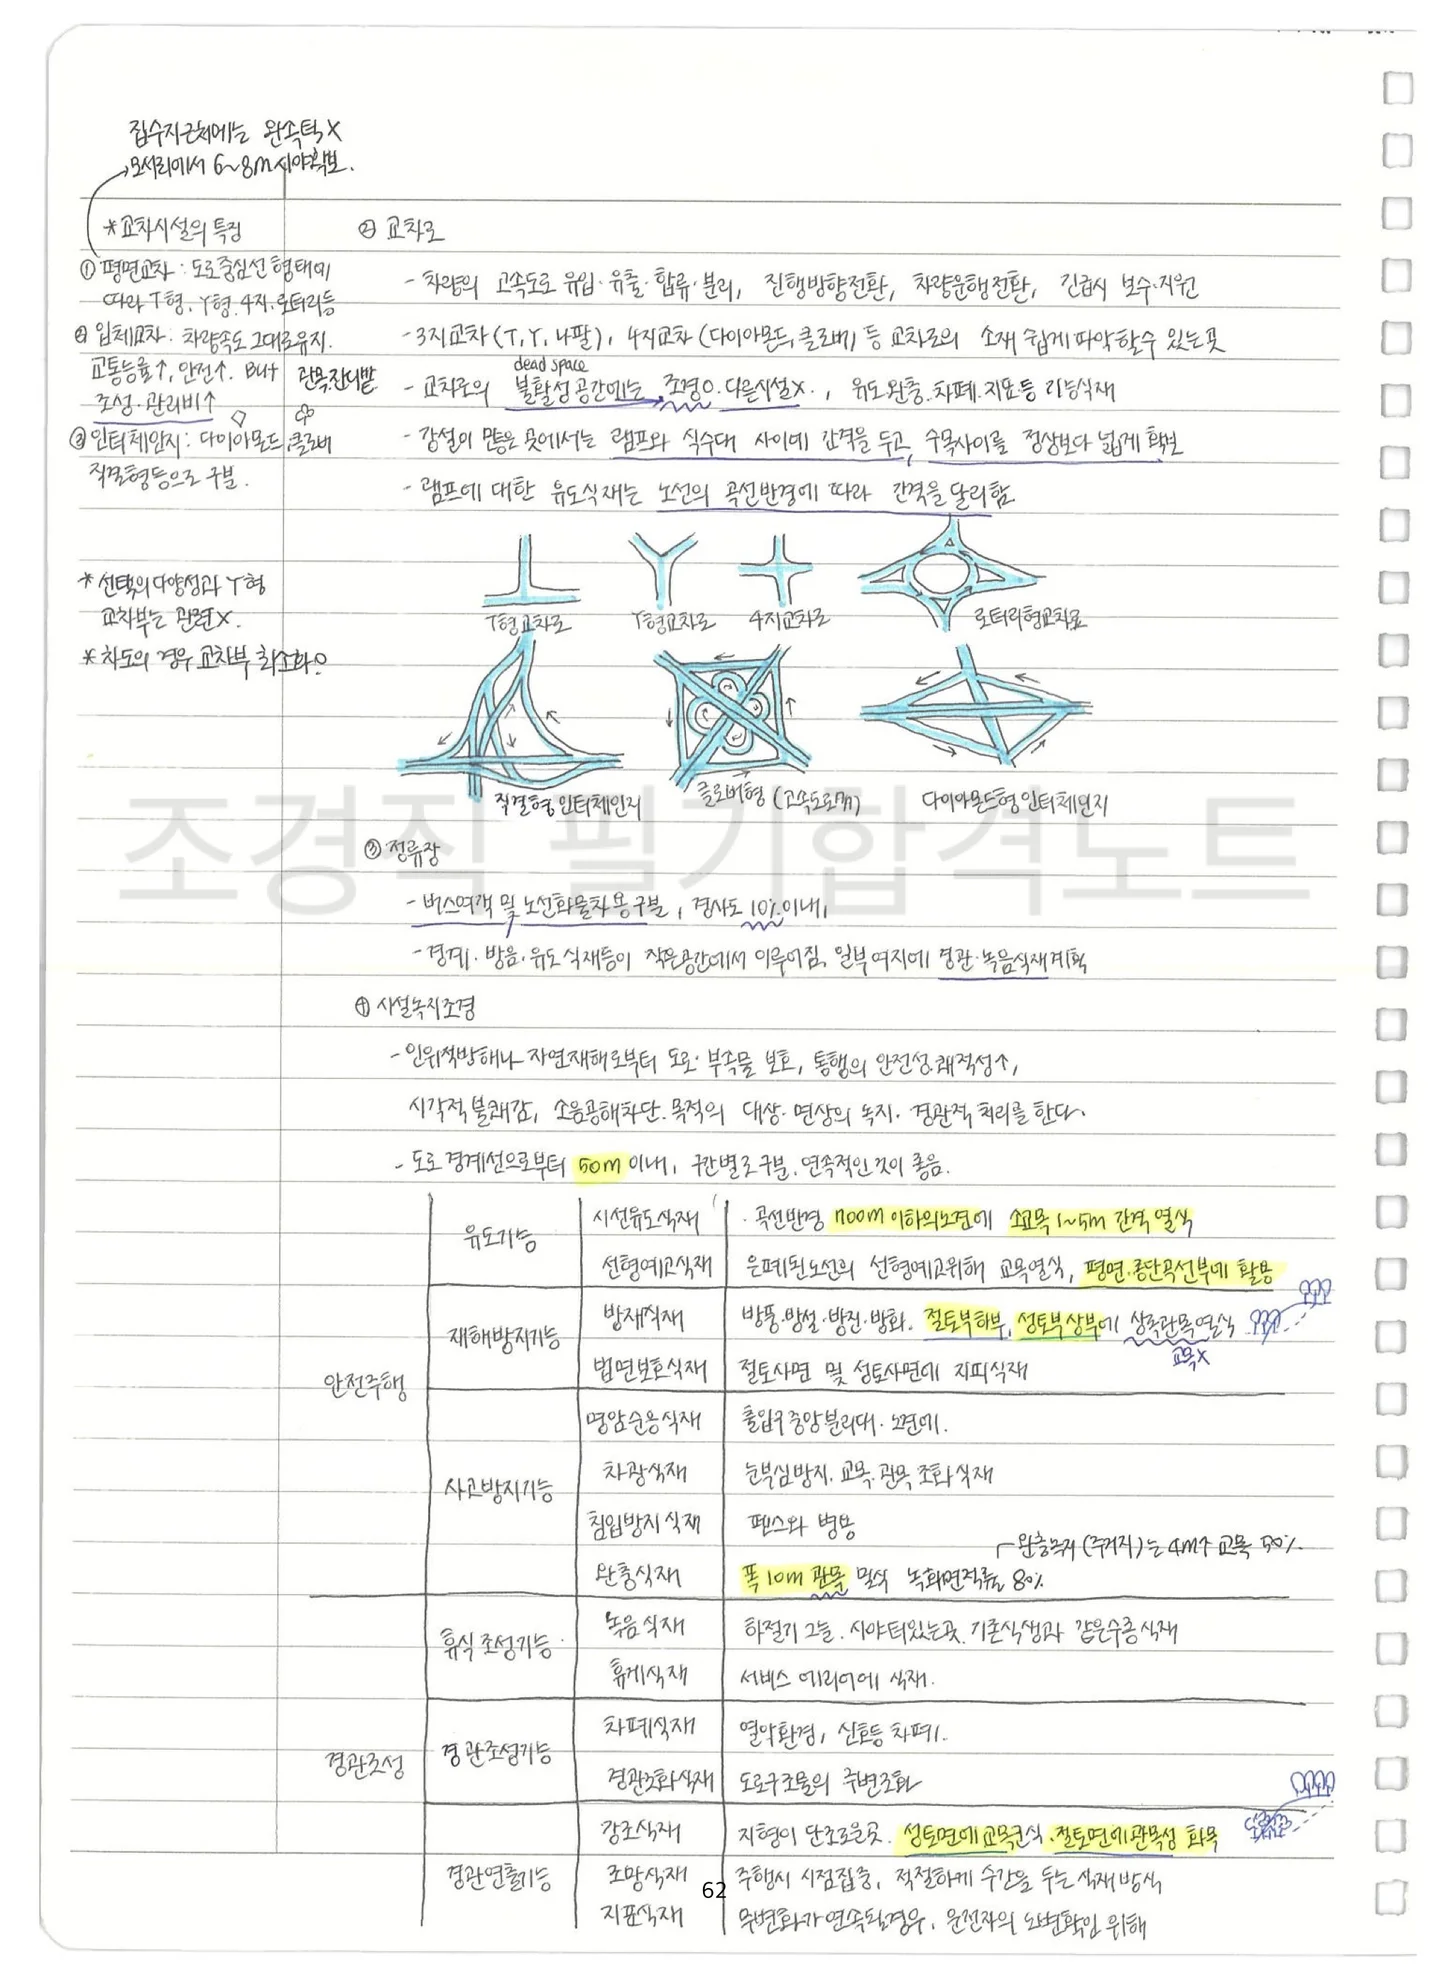 집수지 근처에는 완속턱 X
모서리에서 6~8m 시야확보.
*교차시설의 특징
① 평면교차 : 도로중심선 형태에
따라 T형. Y형. 4지. 로터리 등
② 입체교차 : 차량속도 그대로유지.
교통능률↑, 안전↑. But
조성·관리비↑
관목.잔디밭
③ 인터체인지 : 다이아몬드,클로버
직결형 등으로 구분.
* 선택의 다양성과 Y형
교차부는 관련X.
* 차도의 경우 교차부 최소화O
② 교차로
- 차량의 고속도로 유입·유출·합류·분리, 진행방향전환, 차량운행전환, 긴급시 보수·지원
- 3지교차(T,Y,나팔), 4지교차(다이아몬드,클로버) 등 교차로의 소재 쉽게 파악할수 있는곳
dead space
- 교차로의 불활성공간에는 조경O. 다른시설X. , 유도.완충.차폐.지표등 기능식재
- 강설이 많은 곳에서는 램프와 식수대 사이에 간격을 두고, 수목사이를 정상보다 넓게 확보
- 램프에 대한 유도식재는 노선의 곡선반경에 따라 간격을 달리함
T형교차로
Y형교차로
4지교차로
로터리형교차로
직결형 인터체인지
클로버형 (고속도로예)
다이아몬드형 인터체인지
조경직 필기합격노트
③ 정류장
- 버스여객 및 노선화물차용구분, 경사도 10% 이내,
- 경계·방음·유도식재등이 작은공간에서 이루어짐, 일부여지에 경관·녹음식재계획
④ 시설녹지조경
- 인위적방해나 자연재해로부터 도로·부속물 보호, 통행의 안전성.쾌적성↑,
시각적 불쾌감, 소음공해차단. 목적의 대상·면상의 녹지·경관적 처리를 한다.
- 도로 경계선으로부터 50m 이내, 구간별로구분. 연속적인 것이 좋음.
안전주행
유도기능
시선유도식재
· 곡선반경 700m 이하의노견에 소교목 1~5m 간격 열식
선형예고식재
은폐된노선의 선형예고위해 교목열식, 평면.종단곡선부에 활용
재해방지기능
방재식재
방풍·방설·방진·방화. 절토부하부, 성토부상부에 상록관목열식
교목X
법면보호식재
절토사면 및 성토사면에 지피식재
사고방지기능
명암순응식재
출입구 중앙분리대·노견에.
차광식재
눈부심방지. 교목.관목 조화식재
침입방지식재
펜스와 병용
완충녹지(주거지)는 4m↑ 교목 50%.
완충식재
폭10m 관목 밀식 녹화면적률 80%
경관조성
휴식조성기능
녹음식재
하절기 그늘. 시야 터있는곳. 기존식생과 같은수종식재
휴게식재
서비스 에리어에 식재.
경관조성기능
차폐식재
열악환경, 신호등 차폐.
경관조화식재
도로구조물의 주변조화
경관연출기능
강조식재
지형이 단조로운곳. 성토면에교목군식·절토면에관목성 화목
조망식재
주행시 시점집중, 적절하게 수간을 두는 식재방식
지표식재
무변화가 연속될경우, 운전자의 위치확인 위해
62